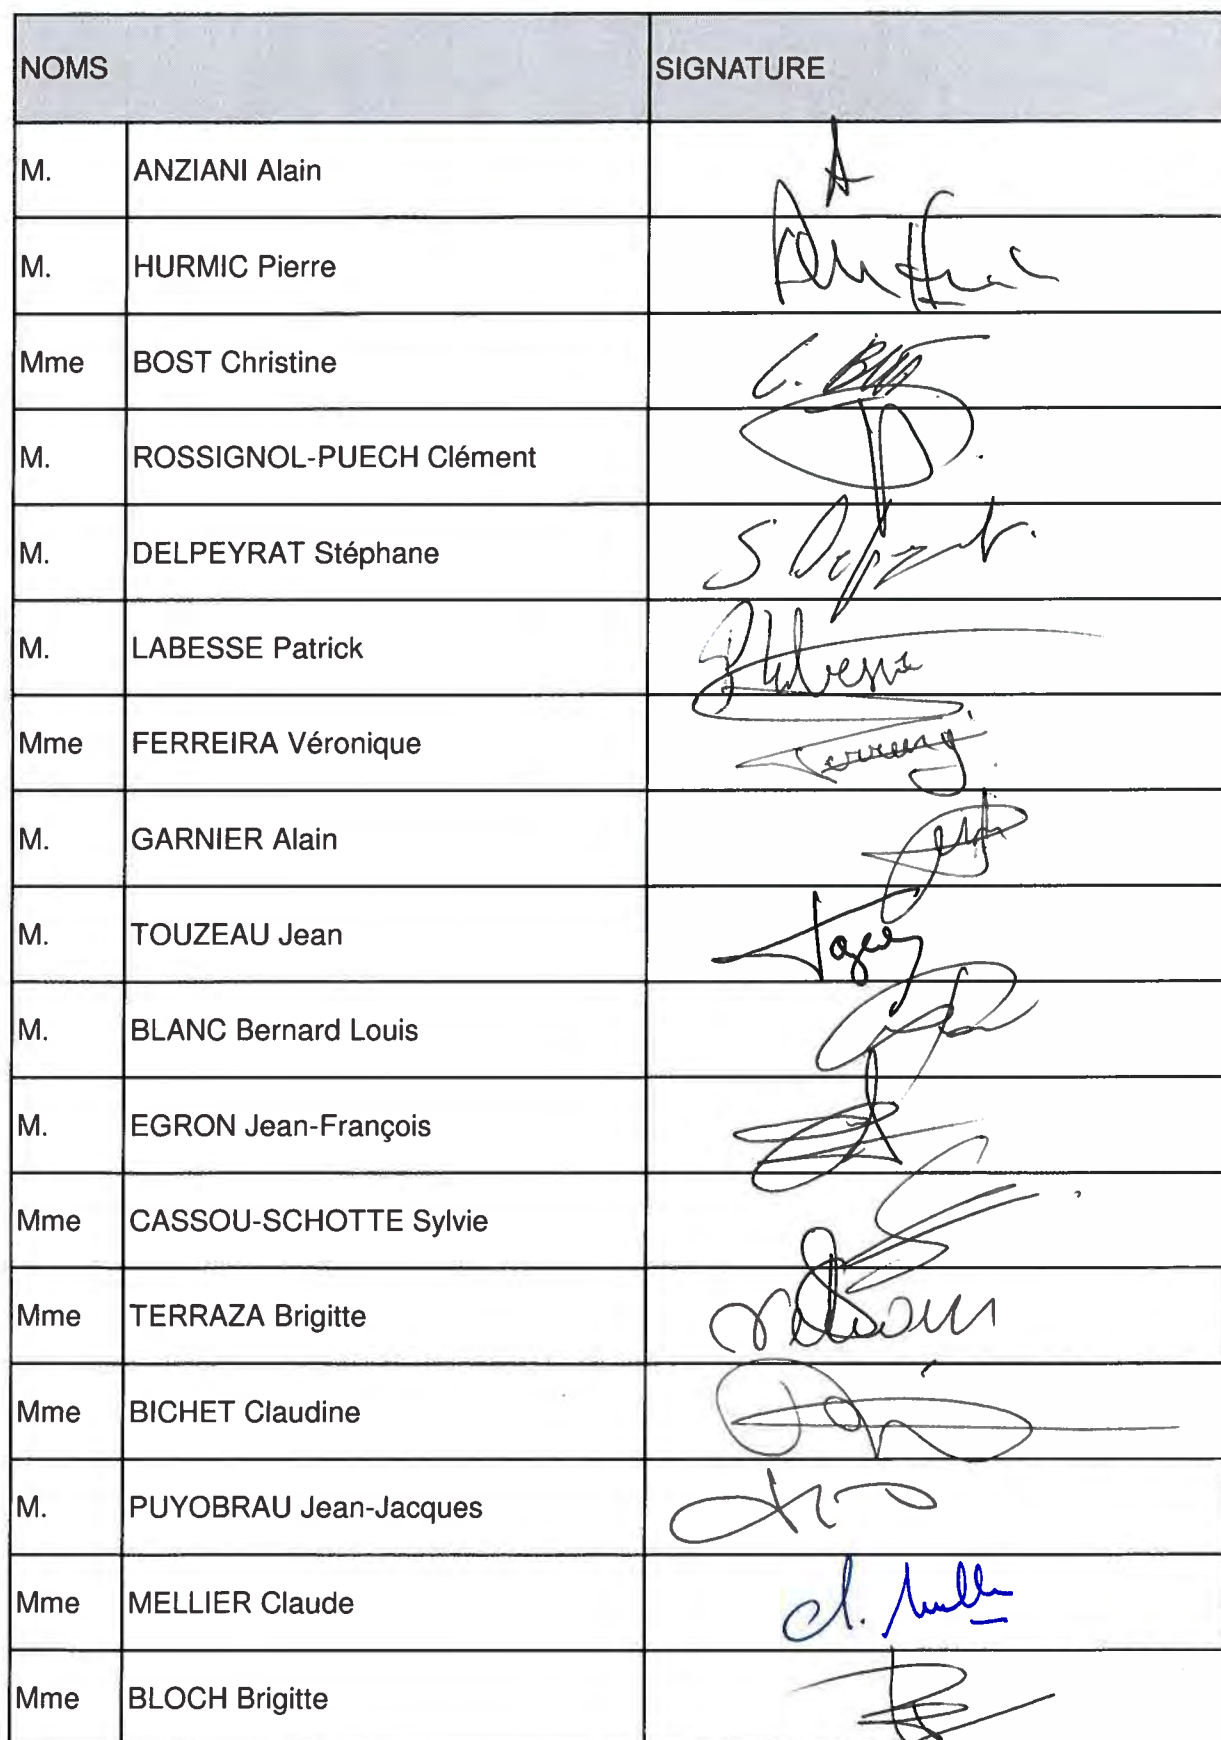 NOMS SIGNATURE
M. ANZIANI Alain
M. HURMIC Pierre
Mme BOST Christine C. Bost
M. ROSSIGNOL-PUECH Clément
M. DELPEYRAT Stéphane
M. LABESSE Patrick
Mme FERREIRA Véronique
M. GARNIER Alain
M. TOUZEAU Jean
M. BLANC Bernard Louis
M. EGRON Jean-François
Mme CASSOU-SCHOTTE Sylvie
Mme TERRAZA Brigitte
Mme BICHET Claudine
M. PUYOBRAU Jean-Jacques
Mme MELLIER Claude
Mme BLOCH Brigitte